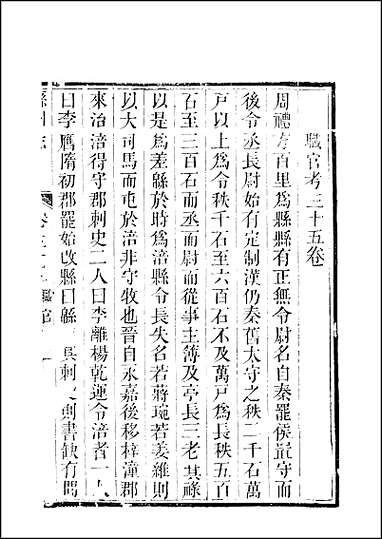 職官考三十五卷
周禮方百里爲縣縣有正無令尉名自秦罷侯置守而
後令丞長尉始有定制漢仍秦舊太守之秩二千石萬
戶以上爲令秩千石至六百石不及萬戶爲長秩五百
石至三百石而丞而尉而從事主簿及亭長三老其祿
以是爲差緜於時爲涪縣令長失名若蔣琬若姜維則
以大司馬而屯於涪非守牧也晉自永嘉後移梓潼郡
來治涪得守郡刺史二人曰李離楊乾運令涪者一人
曰李膺隋初郡罷始改縣曰緜 其刺史則書缺有間
緜州志
卷三十五 職官 一